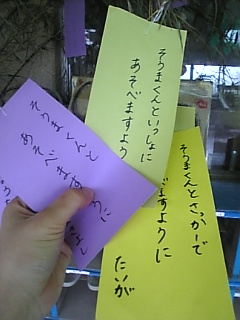 そうまくんといっしょに
あそべますよう
そうまくんと
あそべますように
そうまくんとさっかーで
ますように
たいが